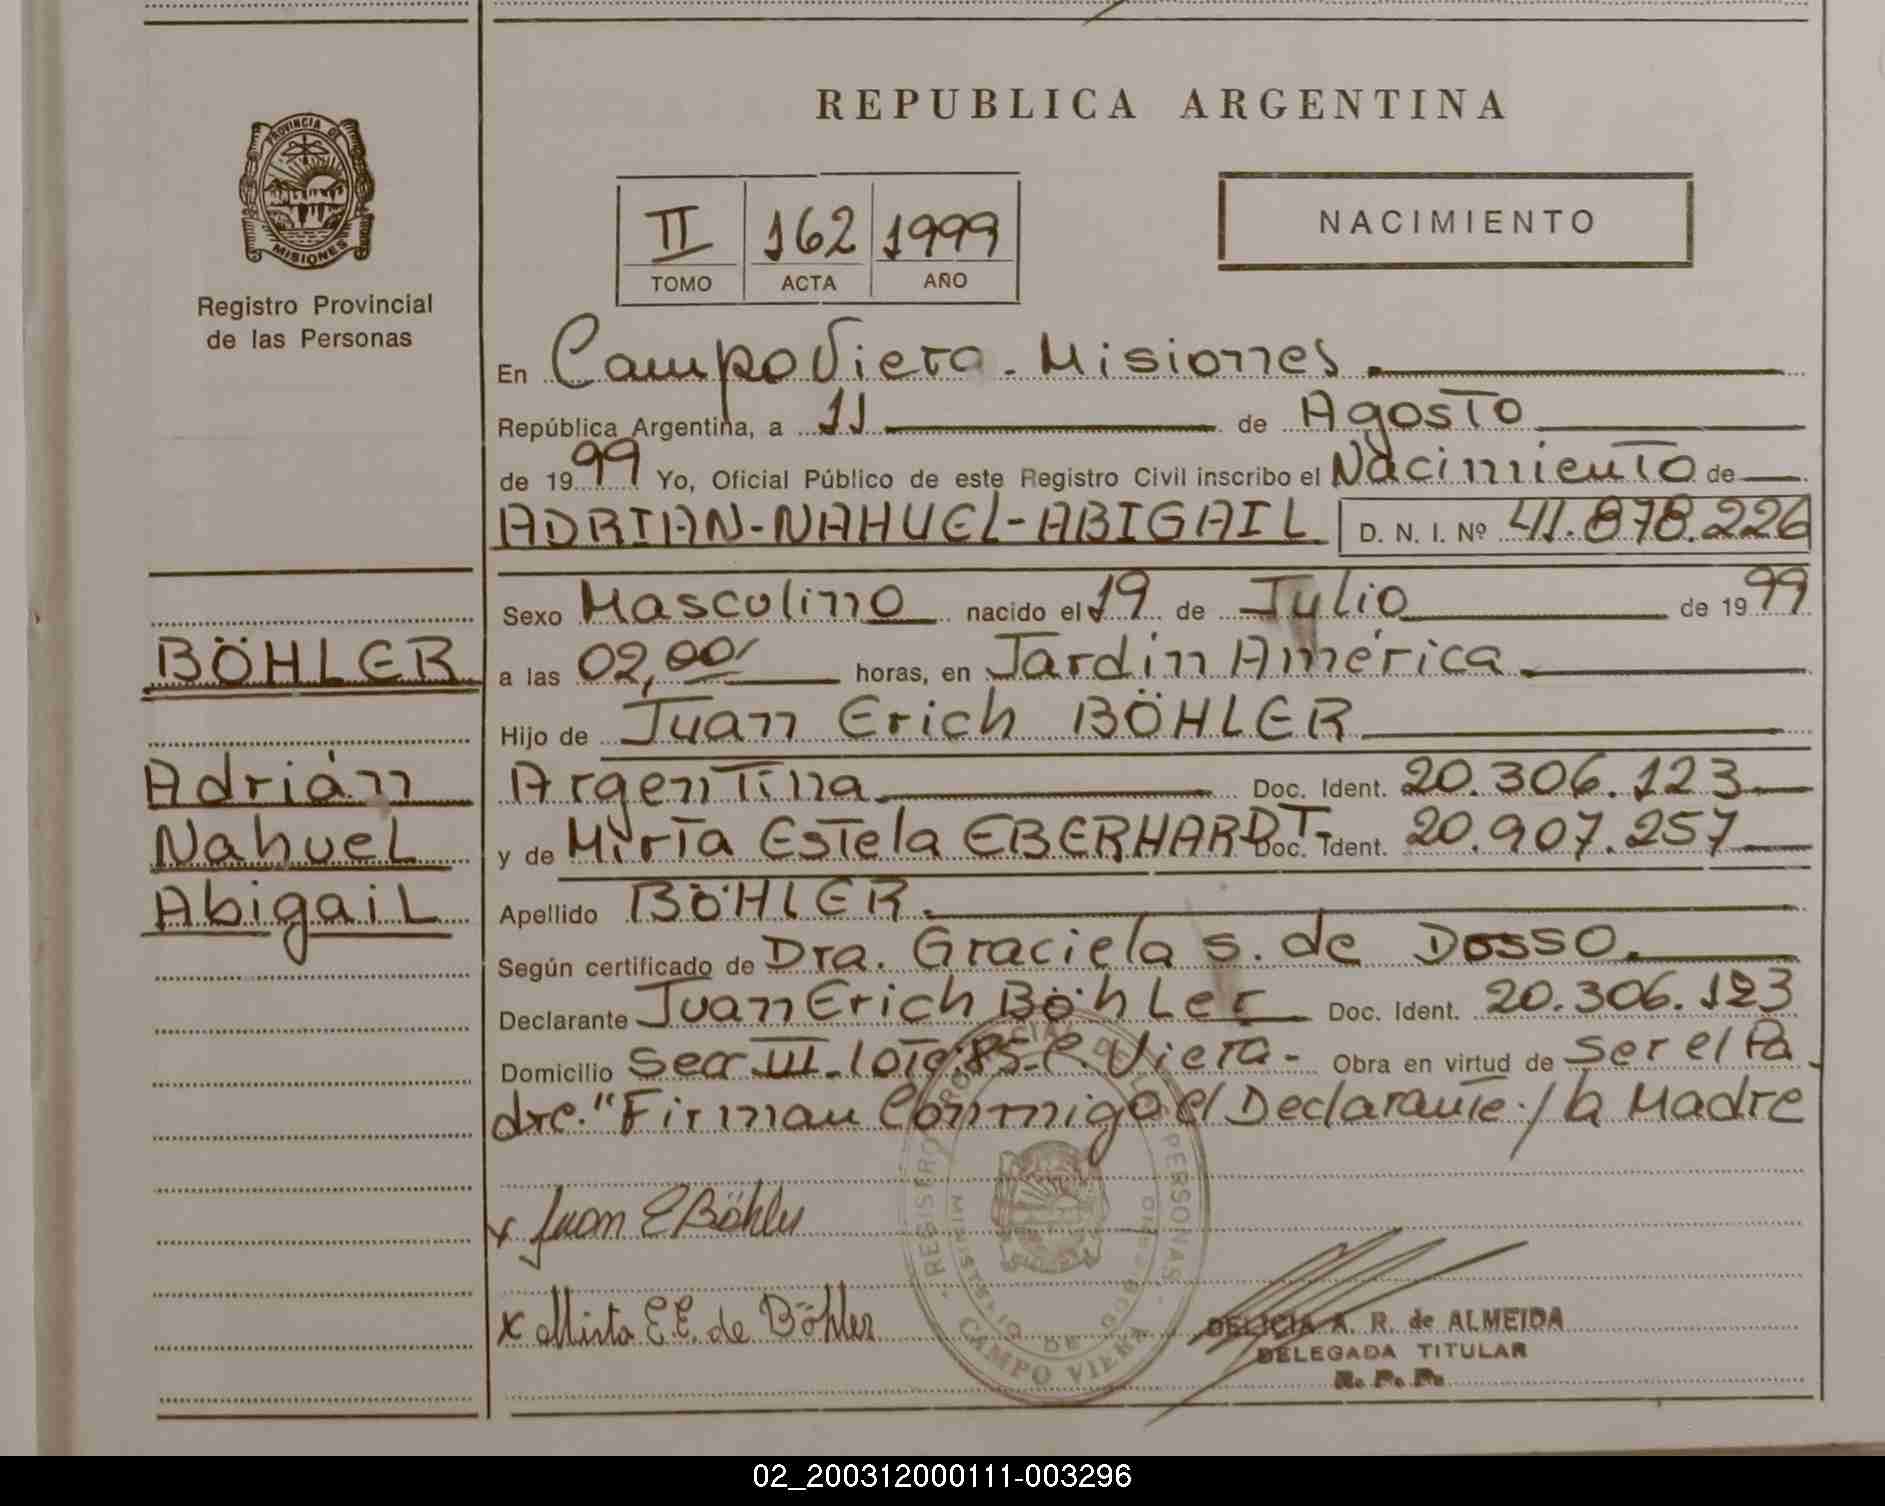 REPUBLICA ARGENTINA
PROVINCIA DE
MISIONES
Registro Provincial
de las Personas
II 162 1999
TOMO ACTA AÑO
NACIMIENTO
En Campo Viera - Misiones.
República Argentina, a 11 de Agosto
de 1999 Yo, Oficial Público de este Registro Civil inscribo el Nacimiento de
ADRIAN-NAHUEL-ABIGAIL D. N. I. Nº 41.878.226
Sexo Masculino nacido el 19 de Julio de 1999
BÖHLER
a las 02,00 horas, en Jardin América
Hijo de Juan Erich BÖHLER
Adrián
Nahuel
Abigail
Argentina Doc. Ident. 20.306.123
y de Mirta Estela EBERHARDT- Doc. Ident. 20.907.257
Apellido BÖHLER.
Según certificado de Dra. Graciela S. de Dosso.
Declarante Juan Erich Böhler Doc. Ident. 20.306.123
Domicilio Secc III-lote:85-C. Viera- Obra en virtud de ser el Pa
dre." Firman Conmigo el Declarante./ la Madre
x Juan E Böhler
x Mirta E E. de Böhler
REGISTRO PROVINCIAL DE LAS PERSONAS
MINISTERIO DE GOBIERNO
CAMPO VIERA
DELICIA A. R. de ALMEIDA
DELEGADA TITULAR
R. P. P.
02_200312000111-003296